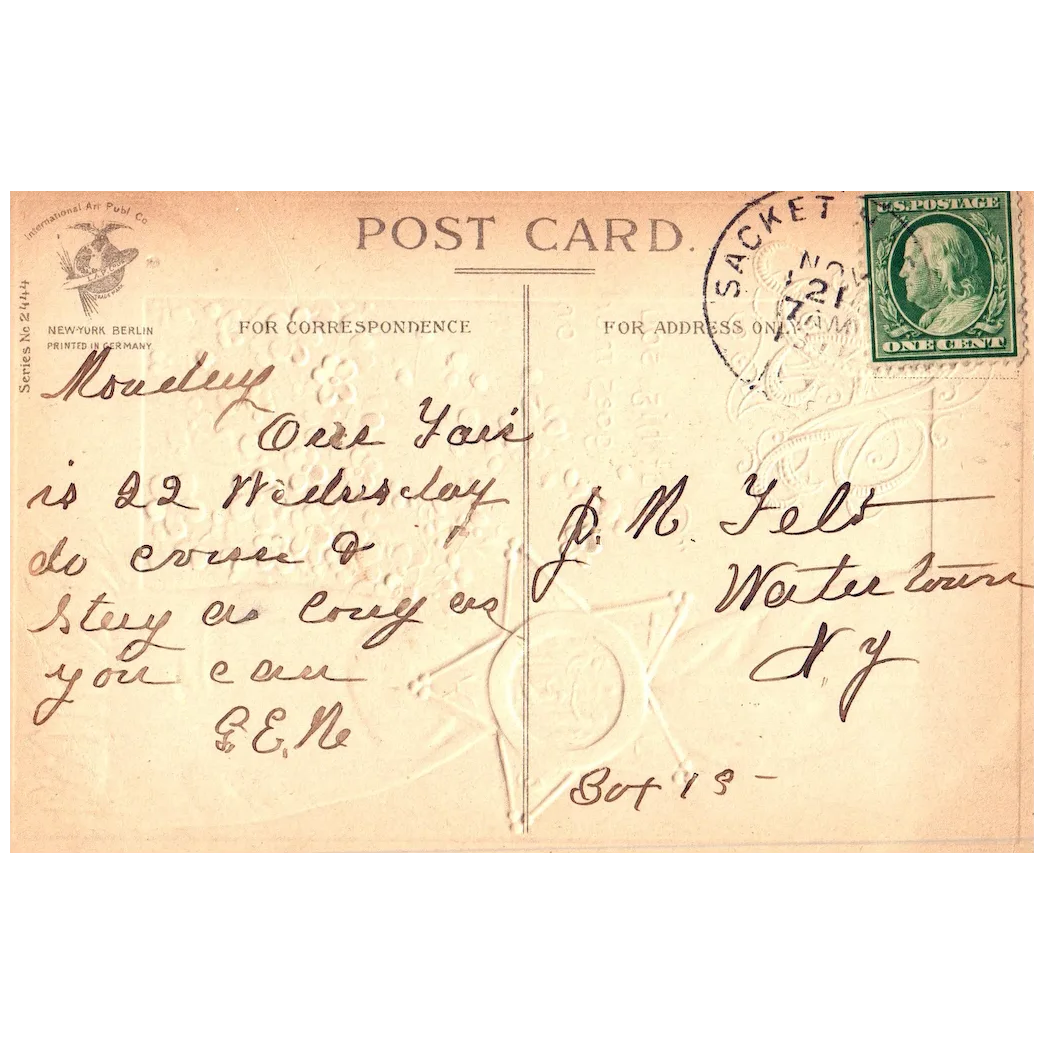 International Art Publ Co
NEW-YORK BERLIN
PRINTED IN GERMANY
Series No 2444
POST CARD.
FOR CORRESPONDENCE
FOR ADDRESS ONLY
SACKET
NOV
21
U.S. POSTAGE
ONE CENT
Monday
Our Fair
is 22 Wednesday
do come &
Stay as long as
you can
G.E.N
J. N. Felt
Watertown
N.Y
Box 15